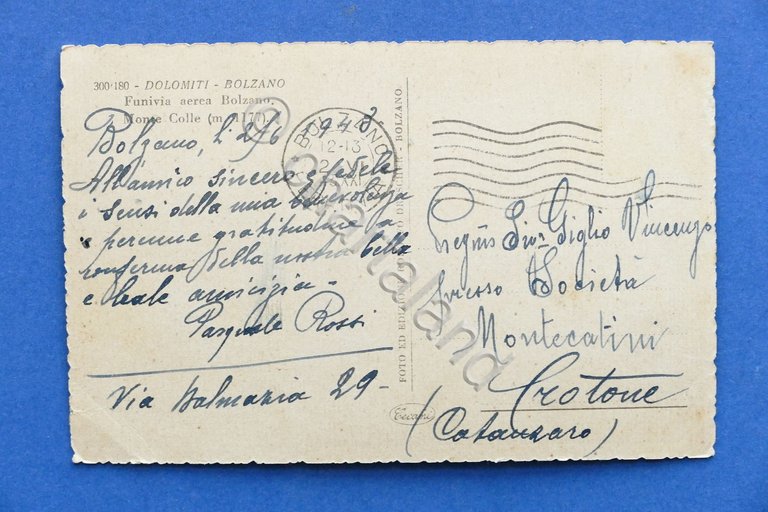 300/180 - DOLOMITI - BOLZANO
Funivia aerea Bolzano.
Monte Colle (m. 1177)
Bolzano, lì 2/6 1943
All'amico sincero e fedele
i sensi della mia benevolenza
perenne gratitudine a
conferma della nostra bella
e leale amicizia -
Pasquale Rossi
Via Dalmazia 29 -
BOLZANO
12-13
FOTO ED EDIZIONI
BOLZANO.
Preg/mo Sior Giglio Vincenzo
presso Società
Montecatini
Crotone
(Catanzaro)
© Cartaland